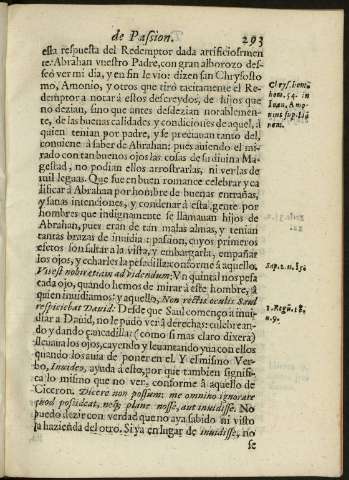 de Passion. 293
esta respuesta del Redemptor dada artificiosamen
te: Abrahan vuestro Padre, con gran alborozo des-
seó ver mi dia, y en fin le vio: dizen san Chrysosto
mo, Amonio, y otros que tiró tacitamente el Re-
demptor a notar a estos descreydos, de hijos que
no dezian, sino que antes desdezian notablemen-
te, de las buenas calidades y condiciones de aquel, á
quien tenian por padre, y se preciauan tanto del,
conuiene á saber de Abrahan: pues auiendo el mi-
rado con tan buenos ojos las cosas de su diuina Ma-
gestad, no podian ellos arrostrarlas, ni ver las de
mil leguas. Que fue en buen romance celebrar y ca
lificar á Abrahan por hombre de buenas entrañas,
y sanas intenciones, y condenar á esta gente por
hombres que indignamente se llamauan hijos de
Abrahan, pues eran de tan malas almas, y tenian
tantas brazas de inuidia: passion, cuyos primeros
efetos son saltar a la vista, y embargarla, empañar
los ojos, y echarles la pesadilla: conforme á aquello.
Vises nobis etiam ad videndum: Vn quintal nos pesa
cada ojo, quando hemos de mirar á este hombre, á
quien inuidiamos: y aquello, Non rectis oculis Saul
respiciebat Dauid: Desde que Saul començó a inui-
diar a Dauid, no le pudo ver á derechas: culebrean-
do y dando çancadillas: (como si mas claro dixera)
lleuaua los ojos, cayendo y leuantando yua con ellos
quando los auia de poner en el. Y el mismo Ver-
bo, Inuideo, ayuda á esto, por que tambien signifi-
ca lo mismo que no ver, conforme á aquello de
Ciceron. Dicere non possum: me omnino ignorare
quod possideat, neq; plane nosse, aut inuidisse. No
puedo dezir con verdad que no aya sabido ni visto
la hazienda del otro. Si ya en lugar de inuidisse, no
se
Chrysost.
hom. 54. in
Ioan. Amo-
nius sup. Ioā
nem.
Sap. 2. n. 15.
1. Regū. 18.
n. 9.